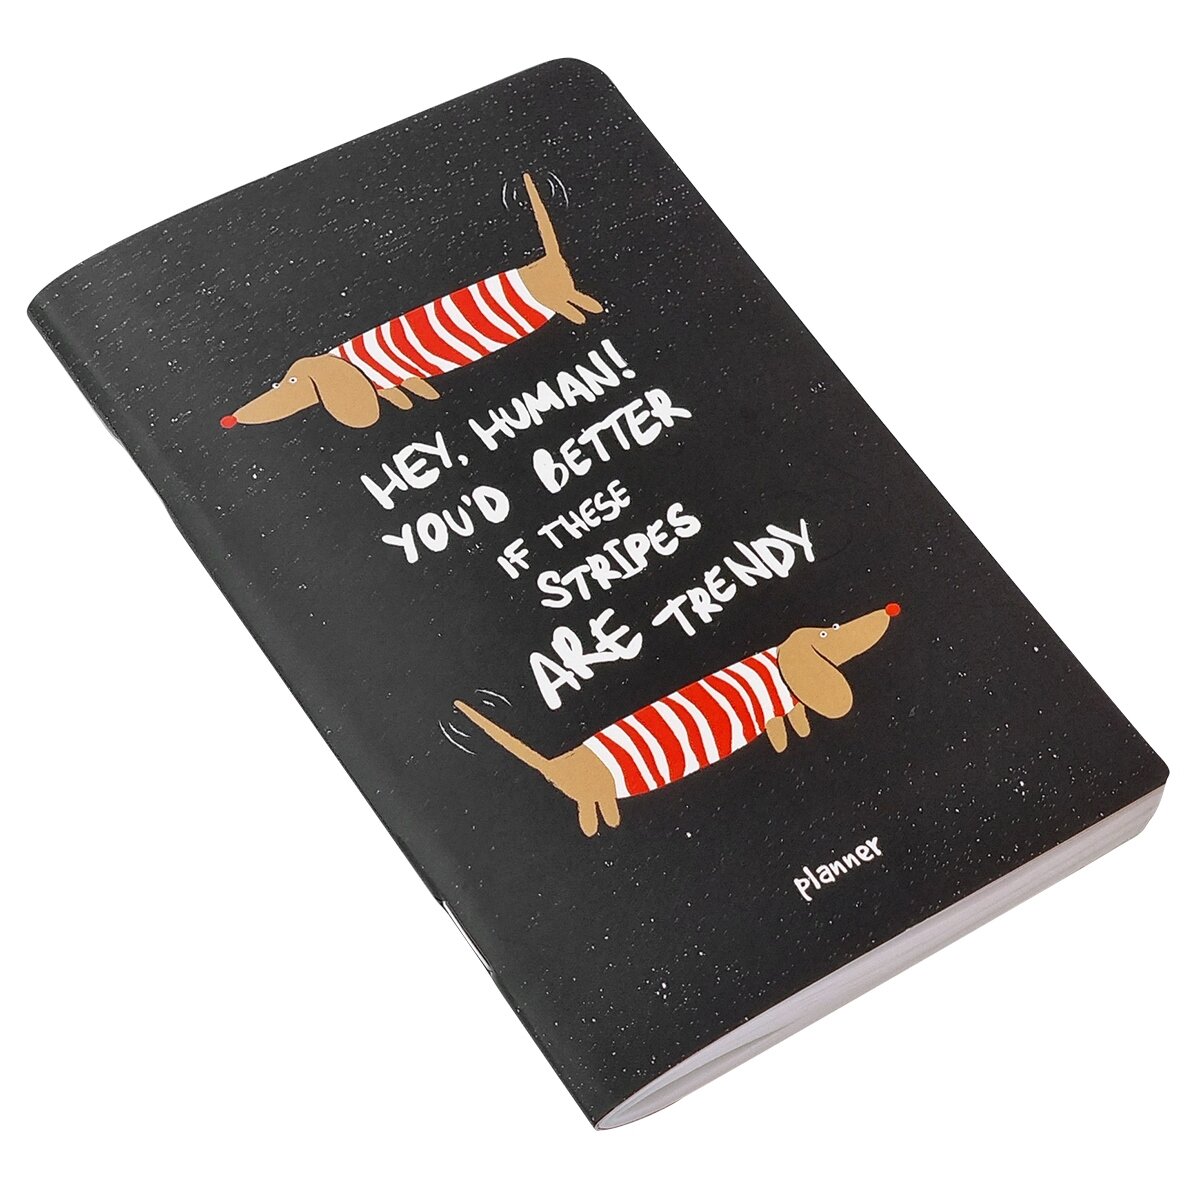 HEY, HUMAN!
YOU'D BETTER
IF THESE
STRIPES
ARE TRENDY
planner